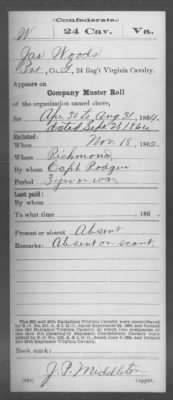 Confederate.
W 24 Cav. Va.
Jas Woods
Pvt, Co. , 24 Reg't Virginia Cavalry.
Appears on
Company Muster Roll
of the organization named above,
for Apr 30 to Aug 31, 1864.
dated Sept. 21 1864
Enlisted:
When Nov. 18, 1862.
Where Richmond
By whom Capt. Rodgers
Period 3 yrs or war
Last paid:
By whom
To what time , 186 .
Present or absent Absent
Remarks: Absent on scout.
Book mark:
J. P. Middleton
Copyist.